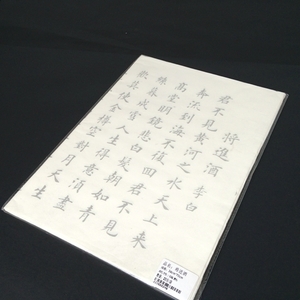 將進酒 李白
君不見黃河之水天上来
奔流到海不復回君不見
高堂明鏡悲白髮朝如青
絲暮成雪人生得意須盡
歡莫使金樽空對月天生